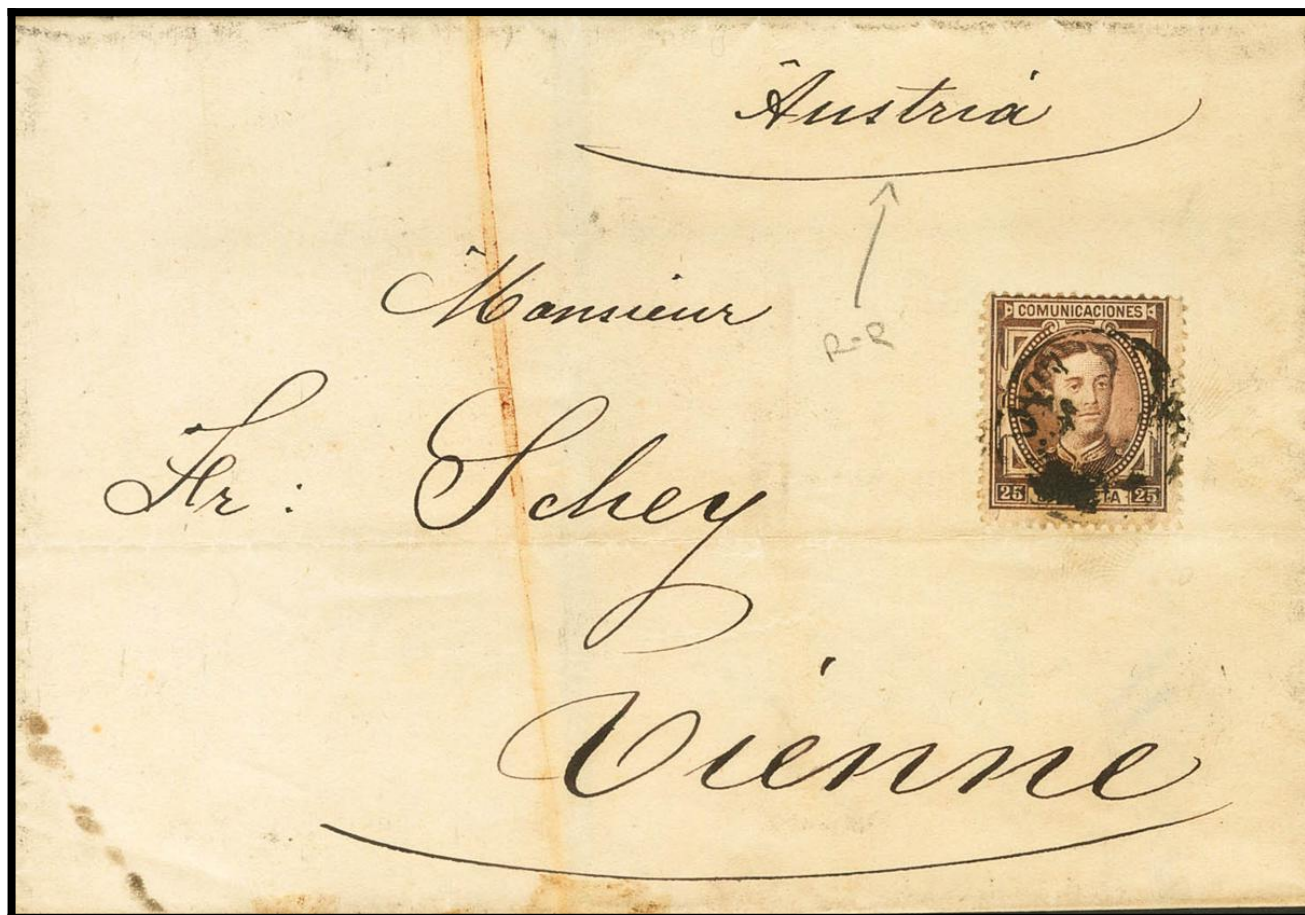 Austria
Monsieur
R-R
COMUNICACIONES
Fr: Schey
25 25
Vienne